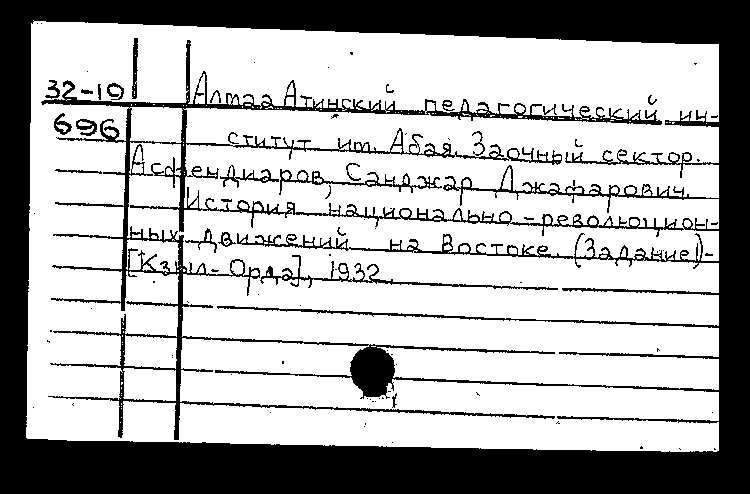 32-19 Алтаа Атинский педагогический ин-
696 ститут им. Абая. Заочный сектор.
Асфендиаров, Санджар Джафарович.
История национально-революцион-
ных движений на Востоке. (Задание)-
[Кзыл-Орда], 1932.